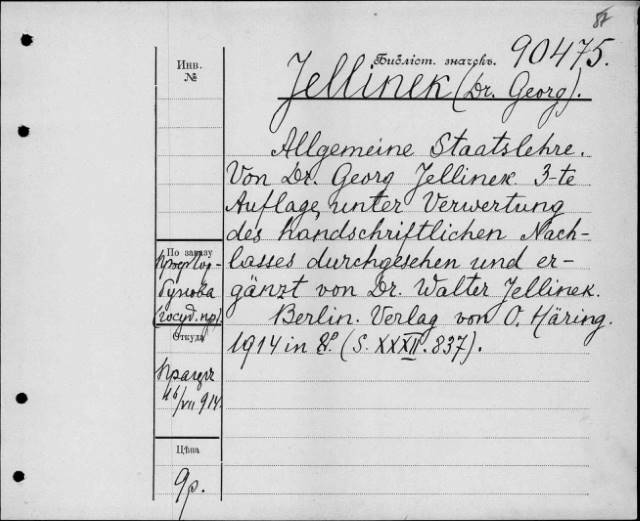 87
Инв.
№
Библіот. значекъ. 90475.
Jellinek (Dr. Georg).
Allgemeine Staatslehre.
Von Dr. Georg Jellinek 3-te
Auflage, unter Verwertung
des handschriftlichen Nach-
lasses durchgesehen und er-
gänzt von Dr. Walter Jellinek.
Berlin. Verlag von O. Häring.
1914 in 8º. (S. XXXII. 837).
По заказу
(госуд. пр).
Откуда
16/VII 914.
Цѣна
9р.